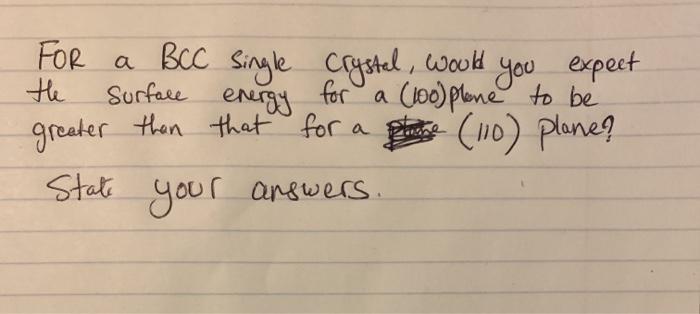 FOR a BCC single crystal, would you expect
the surface energy for a (100) plane to be
greater than that for a (110) plane?
State your answers.